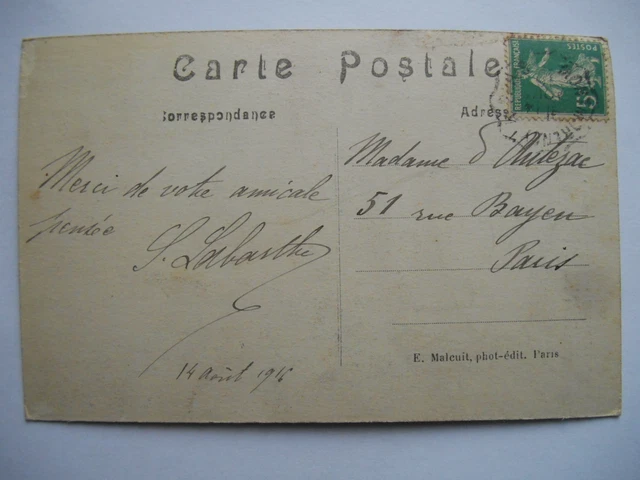 Carte Postale
Correspondance
Adresse
POSTES
REPUBLIQUE FRANÇAISE
5
Merci de votre amicale
pensée
S. Labarthe
14 août
Madame
51 rue Bayen
Paris
E. Malcuit, phot-édit. Paris